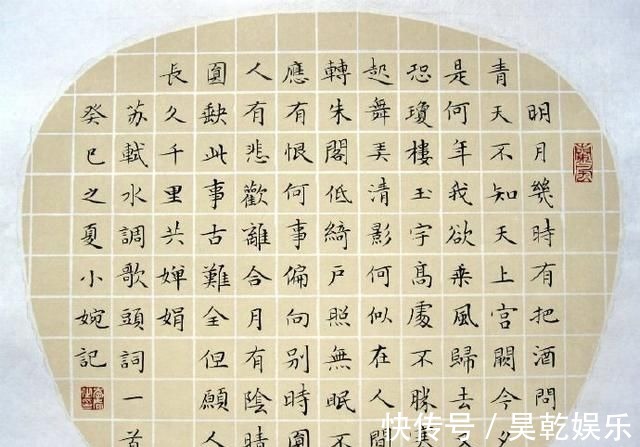 明月幾時有把酒問
青天不知天上宮闕今夕
是何年我欲乘風歸去
恐瓊樓玉宇高處不勝寒
起舞弄清影何似在人間
轉朱閣低綺戶照無眠不
應有恨何事偏向別時圓
人有悲歡離合月有陰晴
圓缺此事古難全但願人
長久千里共嬋娟
苏軾水調歌頭詞一首
癸巳之夏小婉記
快传号 / 昊乾娱乐